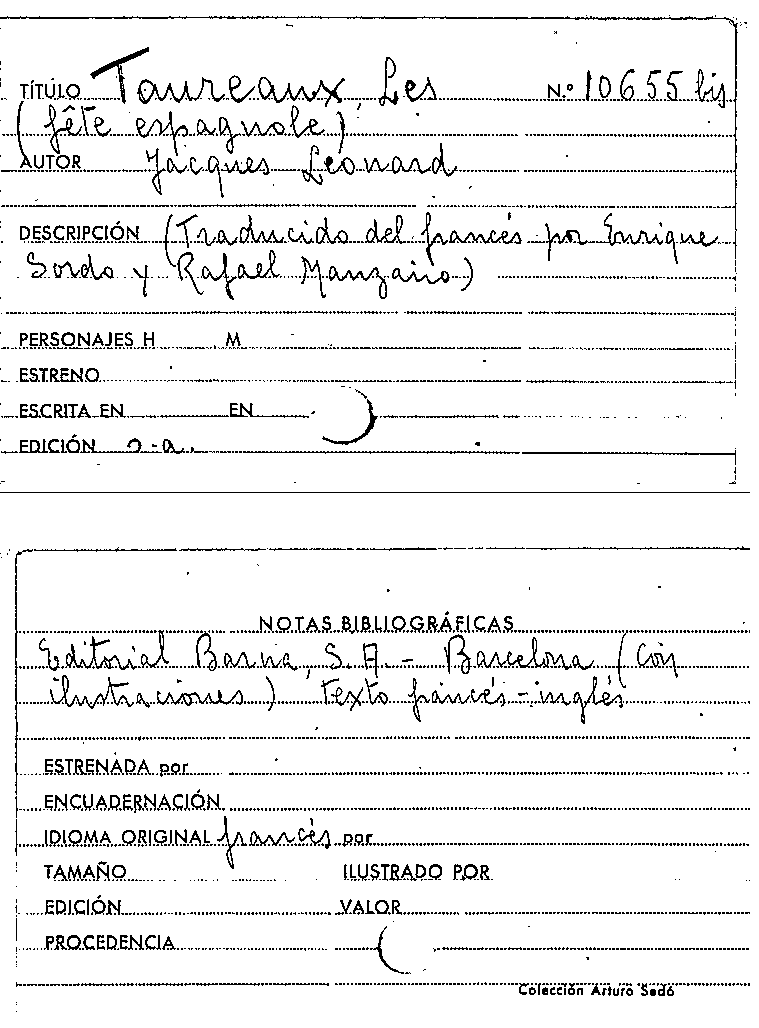 TÍTULO Taureaux, Les N.º 10655 bis
(fête espagnole)
AUTOR Jacques Leonard
DESCRIPCIÓN (Traducido del francés por Enrique
Sordo y Rafael Manzano)
PERSONAJES H M
ESTRENO
ESCRITA EN EN
EDICIÓN s.a.
NOTAS BIBLIOGRÁFICAS
Editorial Barna, S.A. - Barcelona (Con
ilustraciones) texto francés-inglés
ESTRENADA por
ENCUADERNACIÓN
IDIOMA ORIGINAL francés por
TAMAÑO ILUSTRADO POR
EDICIÓN VALOR
PROCEDENCIA
Colección Arturo Sedó